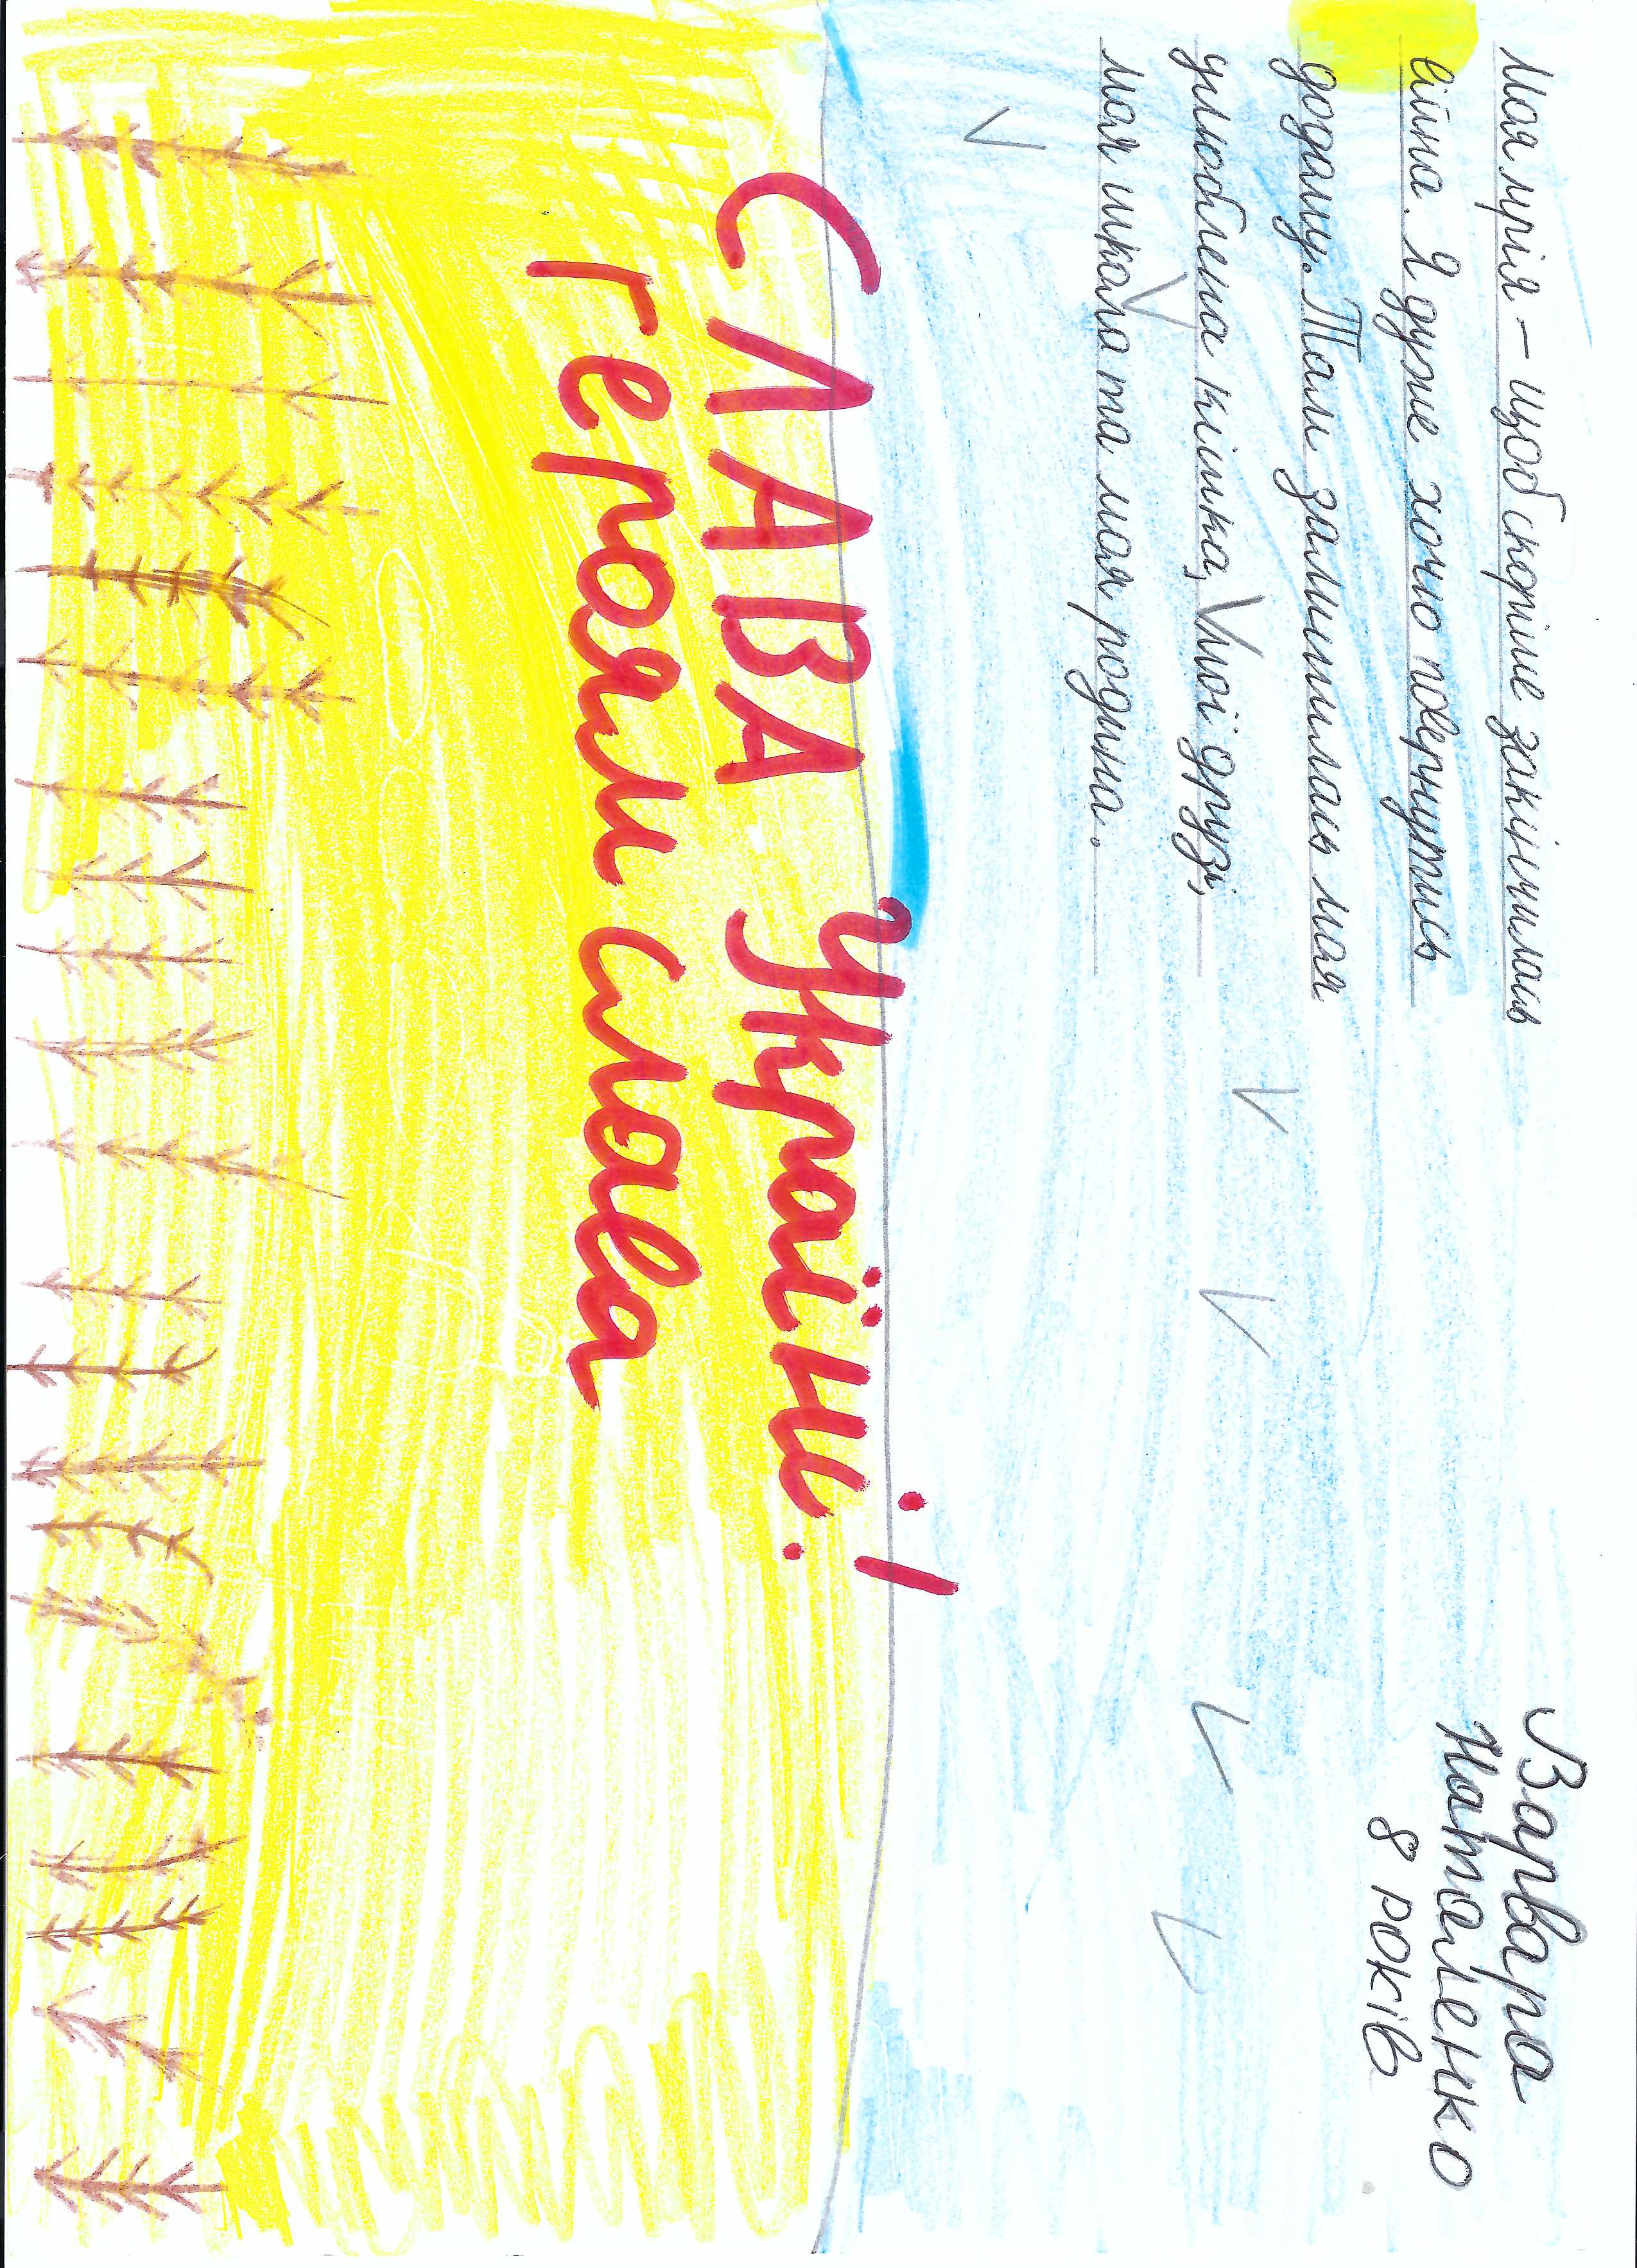 Моя мрія – щоб скоріше закінчилась
війна. Я дуже хочу повернутись
додому. Там залишилась моя
улюблена кішка, мої друзі,
моя школа та моя родина.
Варвара
Наталенко
8 років
СЛАВА Україні!
Героям слава.